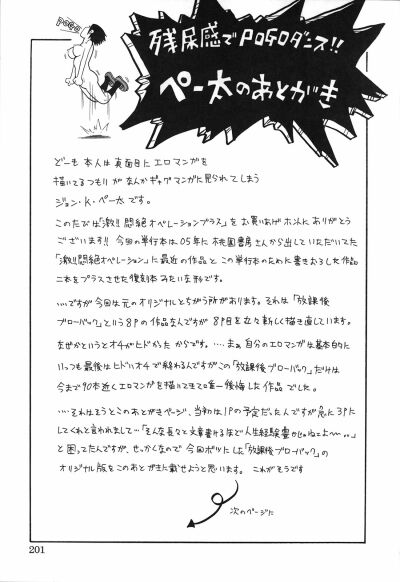 POGO
残尿感でPOGOダンス!!
ペー太のあとがき
どーも 本人は真面目にエロマンガを
描いてるつもりがなんかギャグマンガに見られてしまう
ジョン・K・ペー太です。
このたびは「激!!悶絶オペレーションプラス」をお買いあげホントにありがとう
ございます!! 今回の単行本は05年に桃園書房さんから出していただいてた
「激!!悶絶オペレーション」に最近の作品とこの単行本のために書きおろした作品
二本をプラスさせた復刻本みたいな形です。
…ですが今回は元のオリジナルとちがう所があります。それは「放課後
ブローバック」という8Pの作品なんですが 8P目を立々新しく描き直しています。
なぜかというとオチがヒドかったからです。…まぁ自分のエロマンガは基本的に
いつも最後はヒドいオチで終わるんですがこの「放課後ブローバック」だけは
今まで90本近くエロマンガを描いてきて唯一後悔した作品でした。
‥‥それはそうとこのあとがきページ、当初は1Pの予定だったんですが急に3Pに
してくれと言われまして…「そんな長々と文章書けるほど人生経験豊かじゃねェよ〜‥」
と困ってたんですが、せっかくなので今回ボツにした「放課後ブローバック」の
オリジナル版をこのあとがきに載せようと思います。これがそうです
次のページに
201